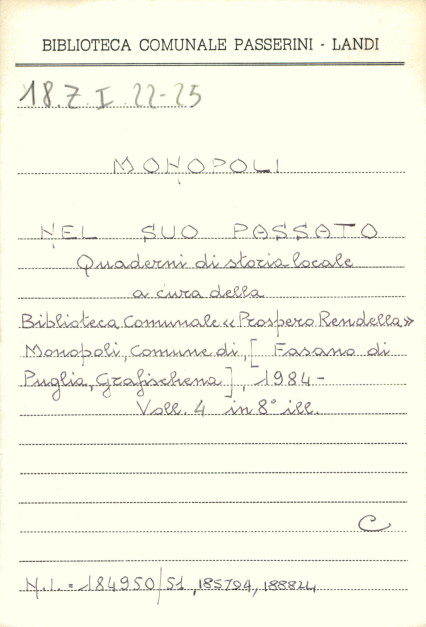 BIBLIOTECA COMUNALE PASSERINI - LANDI
18. Z I. 22-25
MONOPOLI
NEL SUO PASSATO
Quaderni di storia locale
a cura della
Biblioteca Comunale «Prospero Rendella»
Monopoli, Comune di, [ Fasano di
Puglia, Grafischena ], 1984 -
Voll. 4 in 8° ill.
C
N.I. = 184950/51, 185794, 188824